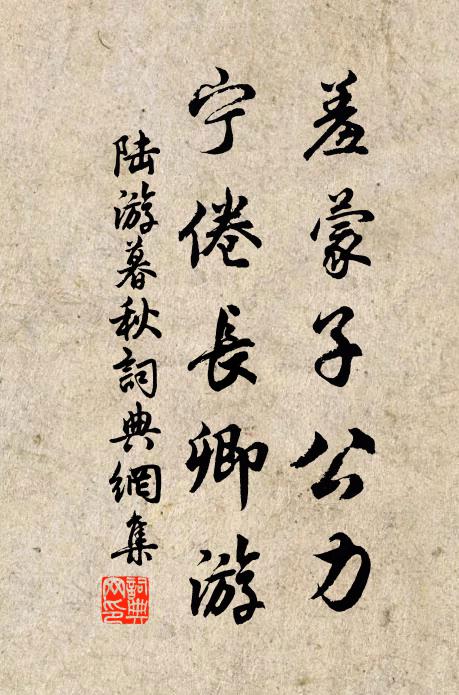 羞蒙子公力
宁倦長卿游
陆游暮秋詞典網集
詞典